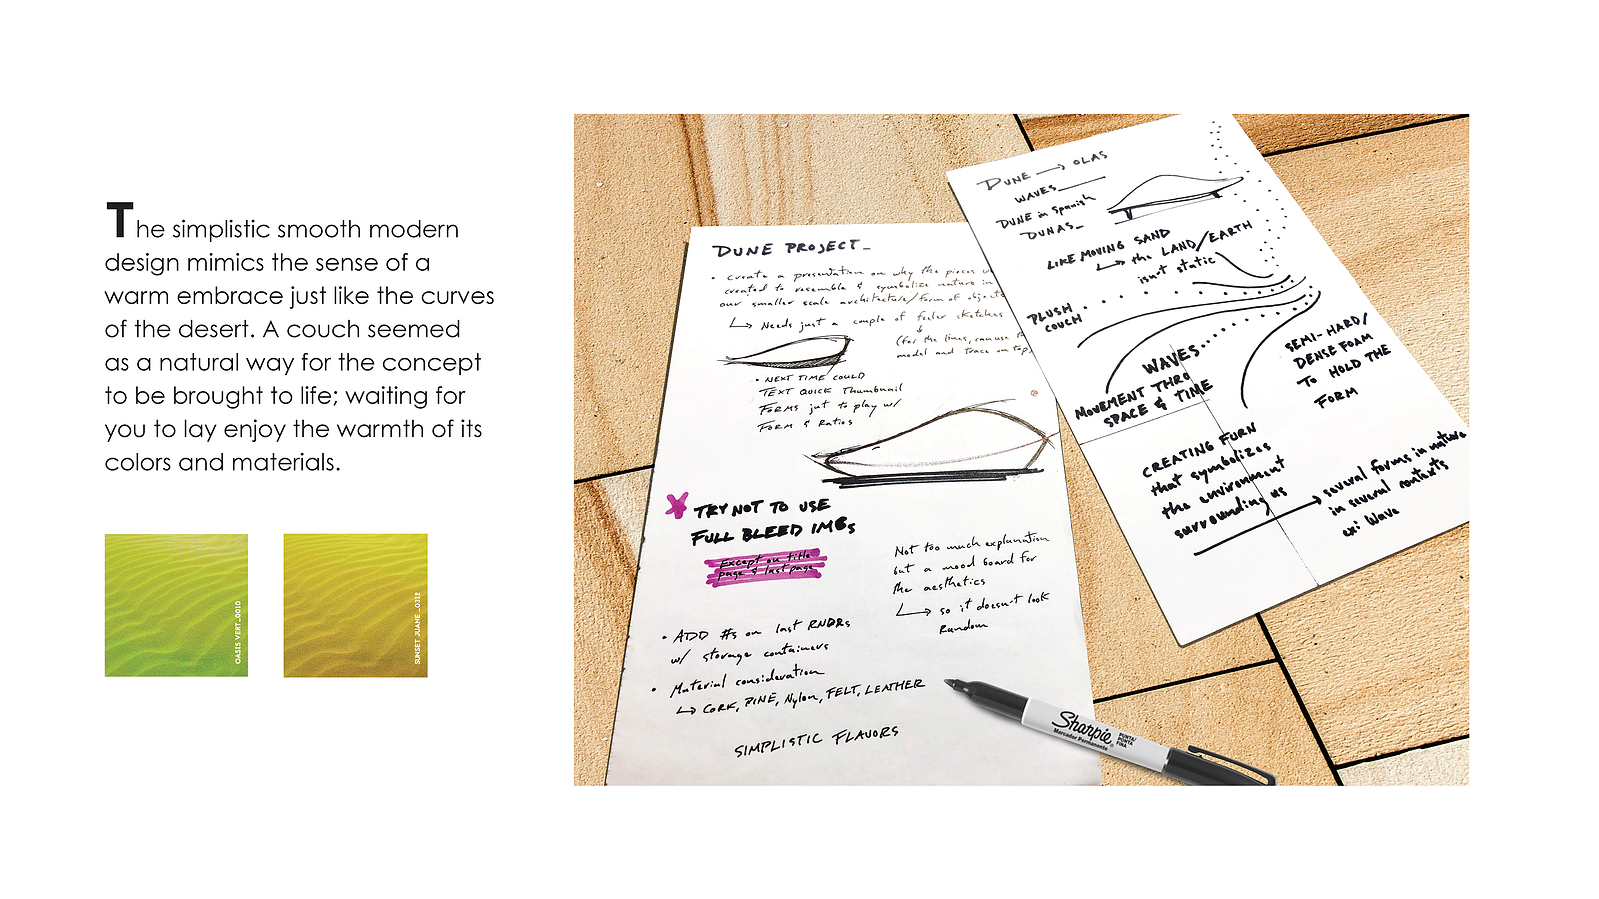 The simplistic smooth modern
design mimics the sense of a
warm embrace just like the curves
of the desert. A couch seemed
as a natural way for the concept
to be brought to life; waiting for
you to lay enjoy the warmth of its
colors and materials.
OASIS VERT_0010
SUNSET JUANE_0312
DUNE PROJECT_
• create a presentation on why the pieces
created to resemble & symbolize nature in
our smaller scale architecture/form of objects
↳ Needs just a couple of feeler sketches
(for the lines, can use
model and trace on top)
• NEXT TIME COULD
TEXT QUICK Thumbnail
FORMS just to play w/
FORM & Ratios
TRY NOT TO USE
FULL BLEED IMGs
Except on title
page & last page
Not too much explanation
but a mood board for
the aesthetics
↳ so it doesn't look
Random
• ADD #s on last RNDRs
w/ storage containers
• Material consideration
↳ CORK, PINE, Nylon, FELT, LEATHER
SIMPLISTIC FLAVORS
DUNE → OLAS
WAVES
DUNE in Spanish
DUNAS_
LIKE MOVING SAND
↳ the LAND/EARTH
isn't static
PLUSH
COUCH
WAVES
MOVEMENT THRO
SPACE & TIME
SEMI-HARD/
DENSE FOAM
TO HOLD THE
FORM
CREATING FURN
that symbolizes
the environment
surrounding us
→ several forms in nature
in several contexts
ex: Wave
Sharpie
Marcador Permanente
PUNTA/
PONTA
FINA